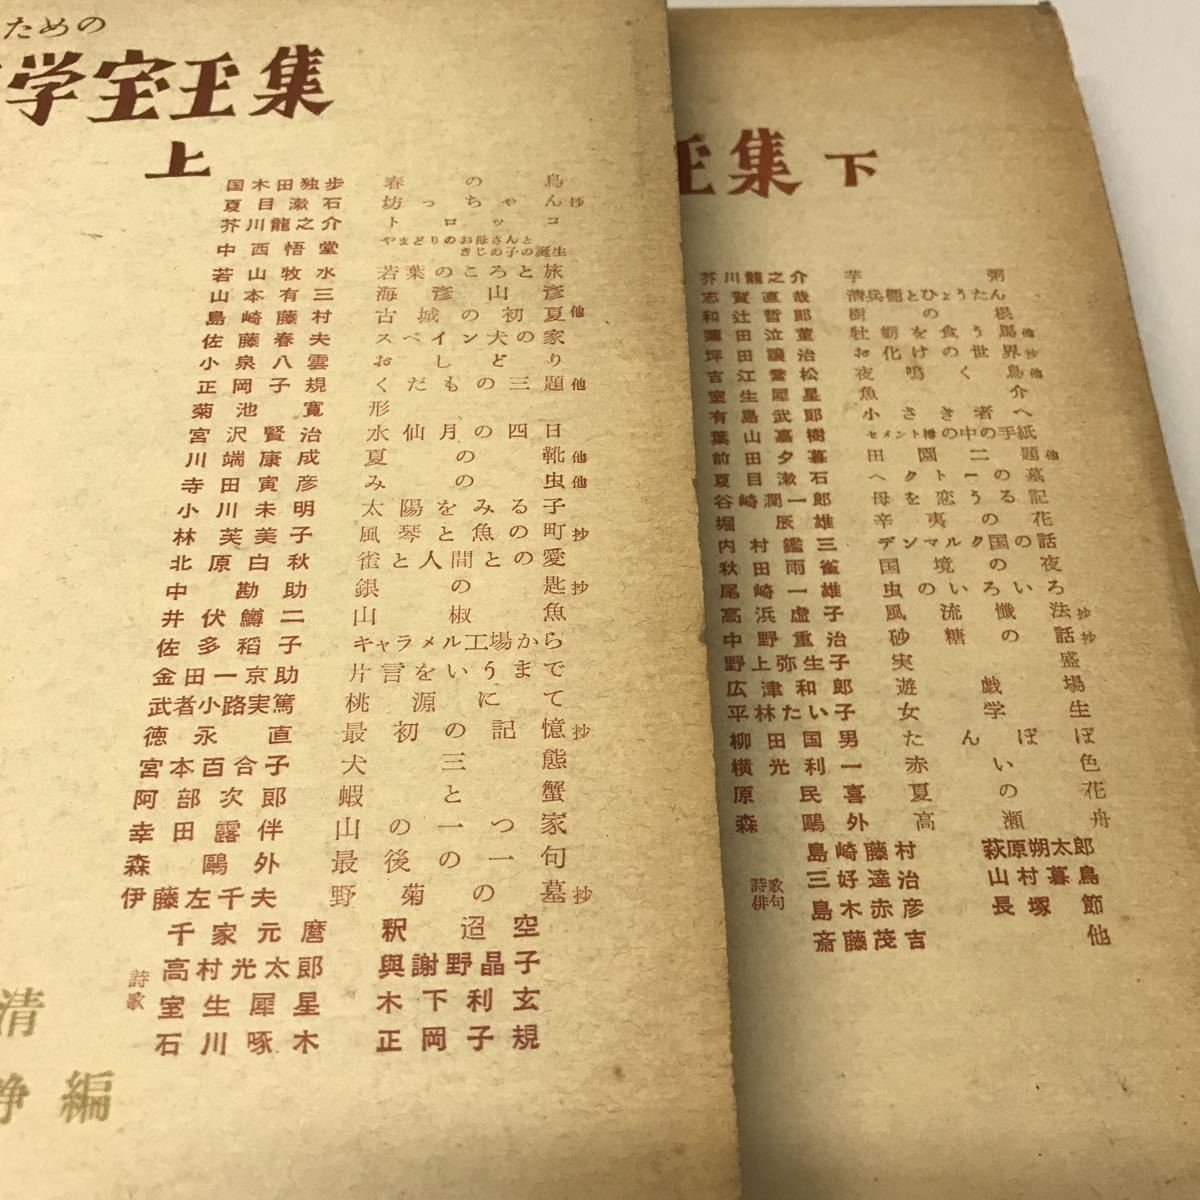 ための
学宝玉集
上
国木田独歩 春の鳥
夏目漱石 坊っちゃん抄
芥川龍之介 トロッコ
中西悟堂 やまどりのお母さんと
きじの子の誕生
若山牧水 若葉のころと旅
山本有三 海彦山彦
島崎藤村 古城の初夏他
佐藤春夫 スペイン犬の家
小泉八雲 おしどり
正岡子規 くだもの三題他
菊池寛 形
宮沢賢治 水仙月の四日
川端康成 夏の靴他
寺田寅彦 みの虫他
小川未明 太陽をみる子
林芙美子 風琴と魚の町抄
北原白秋 雀と人間との愛
中勘助 銀の匙抄
井伏鱒二 山椒魚
佐多稲子 キャラメル工場から
金田一京助 片言をいうまで
武者小路実篤 桃源にて
徳永直 最初の記憶抄
宮本百合子 犬三態
阿部次郎 蝦と蟹
幸田露伴 山の一つ家
森鷗外 最後の一句
伊藤左千夫 野菊の墓抄
詩歌
千家元麿 釈迢空
高村光太郎 與謝野晶子
室生犀星 木下利玄
石川啄木 正岡子規
清
編
玉集 下
芥川龍之介 芋粥
志賀直哉 清兵衛とひょうたん
和辻哲郎 樹の根
薄田泣菫 牡蠣を食う馬他
坪田譲治 お化けの世界抄
吉江喬松 夜鳴く鳥他
室生犀星 魚介
有島武郎 小さき者へ
葉山嘉樹 セメント樽の中の手紙
前田夕暮 田園二題他
夏目漱石 ヘクトーの墓
谷崎潤一郎 母を恋うる記
堀辰雄 辛夷の花
内村鑑三 デンマルク国の話
秋田雨雀 国境の夜
尾崎一雄 虫のいろいろ
高浜虚子 風流懺法抄
中野重治 砂糖の話抄
野上弥生子 実盛
広津和郎 遊戯場
平林たい子 女学生
柳田国男 たんぽぽ
横光利一 赤い色
原民喜 夏の花
森鷗外 高瀬舟
詩歌
俳句
島崎藤村 萩原朔太郎
三好達治 山村暮鳥
島木赤彦 長塚節
斎藤茂吉 他